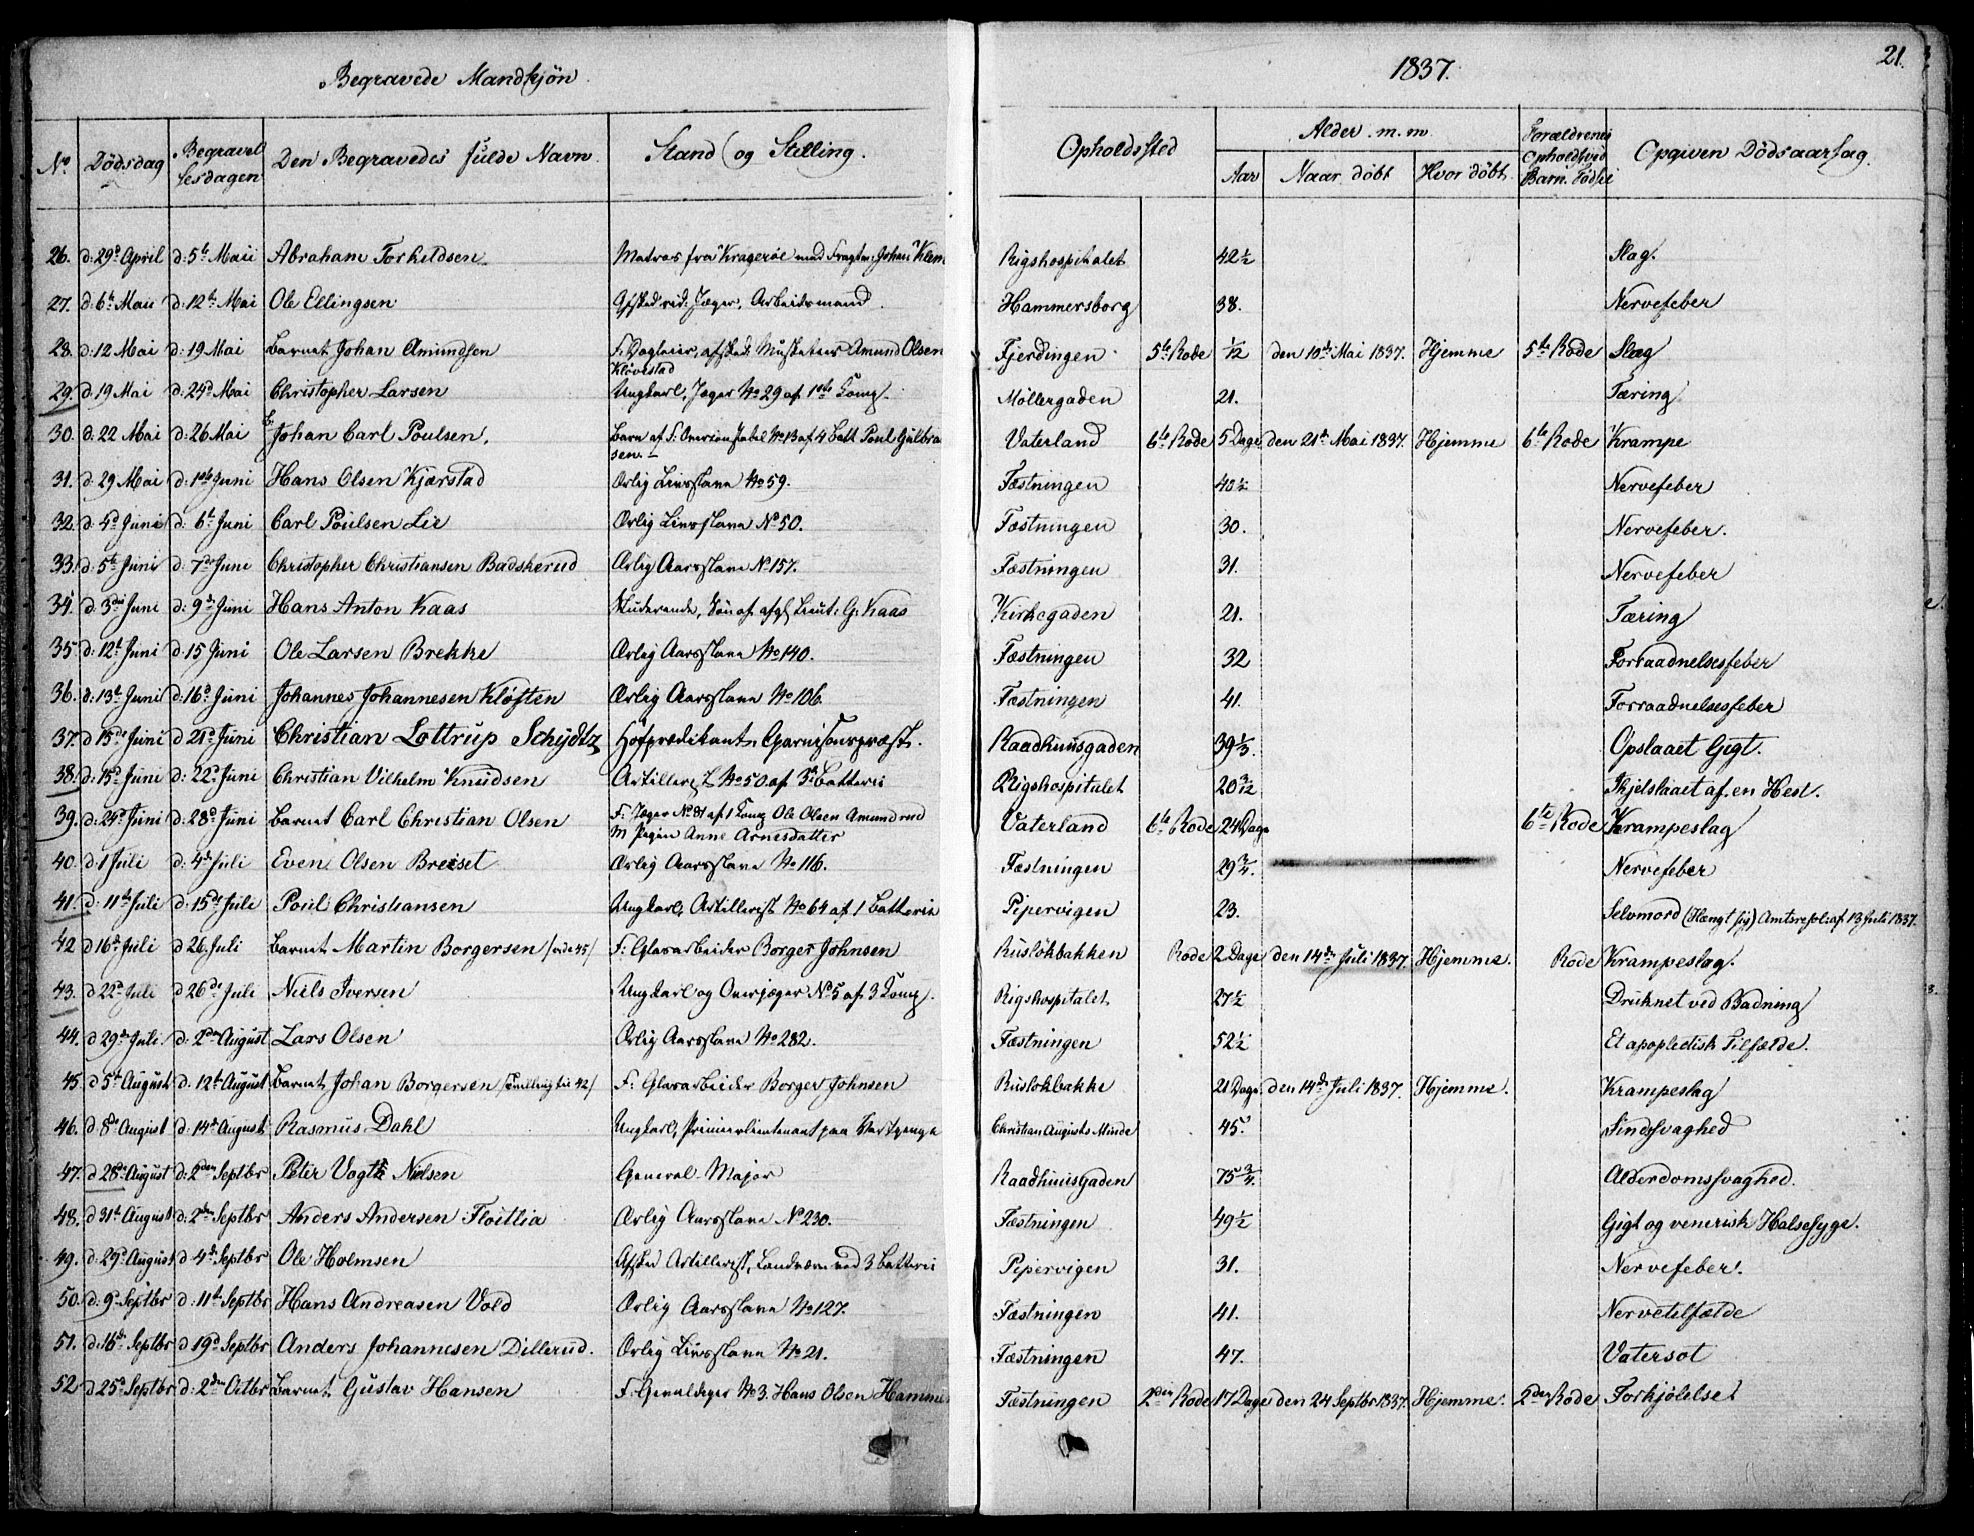 Begravede Mandkjøn.
1837.
21.
No | Dødsdag | Begravelsesdagen | Den Begravedes fulde Navn | Stand og Stilling. | Opholdssted | Alder m. m. | Aar | Naar døbt | Hvor døbt | Forældrenes Ophold ved Barn. Fødsel | Opgiven Dødsaarsag.
26. | d: 29d April | d: 5te Maii | Abraham Torkildsen | Matros fra Kragerøe med Fragtm: Johan Klem | Rigshospitalet | 42½ | Slag.
27. | d: 6te Maii | d: 12te Mai | Ole Ellingsen | Afsked: rid: Jæger, Arbeidsmand. | Hammersborg | 38. | Nervefeber
28. | d: 12 Mai | d: 19 Mai | Barnet Johan Amundsen | F: Dagleier, afsked: Musketeer Amund Olsen Kløvestad | Fjerdingen | 5te Rode | 1/12 | den 10de Mai 1837. | Hjemme | 5te Rode | Slag
29. | d. 19 Mai | d: 24d Mai | Christopher Larsen | Ungkarl, Jæger No 29 af 1ste Komp. | Møllergaden | 21. | Tæring
30. | d: 22 Mai | d: 26 Mai | B: Johan Carl Poulsen, | Barn af F: Overconstabel No 13 af 4 Batt Poul Gulbrandsen. | Vaterland | 6te Rode | 5 Dage | den 21de Mai 1837. | Hjemme | 6te Rode | Krampe
31. | d: 29 Mai | d: 1ste Juni | Hans Olsen Kjærstad | Ærlig Livsslave No 59. | Fæstningen | 40½ | Nervefeber
32. | d: 4d Juni | d: 6te Juni | Carl Poulsen Lie | Ærlig Livsslave No 50. | Fæstningen | 30. | Nervefeber.
33. | d: 5te Juni | d: 7de Juni | Christopher Christiansen Badskerud | Ærlig Aarsslave No 157. | Fæstningen | 31. | Nervefeber
34. | d: 3die Juni | d: 9de Juni | Hans Anton Kaas | Studerende, Søn af afg. Lieut: G: Kaas | Kirkegaden | 21. | Tæring
35. | d: 12te Juni | d: 15 Juni | Ole Larsen Brekke | Ærlig Aarsslave No 140. | Fæstningen | 32 | Forraadnelsesfeber
36. | d: 13de Juni | d: 16d Juni | Johannes Johannesen Kløften | Ærlig Aarsslave No 106. | Fæstningen | 41. | Forraadnelsesfeber
37. | d 15de Juni | d 21d Juni | Christian Lottrup Schydtz | Hofprædikant, Garnisonspræst. | Raadhuusgaden | 39⅓ | Opslaaet Gigt.
38. | d: 15d Juni | d: 22d Juni | Christian Vilhelm Knudsen | Artillerist No 50 af 3d Batterie | Rigshospitalet | 20 3/12 | Ihjelslaaet af en Hest.
39. | d: 24d Juni | d: 28d Juni | Barnet Carl Christian Olsen | F: Jæger No 81 af 1 Komp Ole Olsen Amundrud M Pigen Anne Arnesdatter | Vaterland | 6te Rode | 24 Dage | 6te Rode | Krampeslag
40. | d: 1 Juli | d: 4de Juli | Even Olsen Breiset | Ærlig Aarsslave No 116. | Fæstningen | 29¾. | Nervefeber
41. | d: 11te Juli | d: 15de Juli | Poul Christiansen | Ungkarl, Artillerist No 64 af 1 Batterie | Pipervigen | 23. | Selvmord (Hængt sig) Amtsresol: af 13 Juli 1837.
42 | d 16de Juli | d 26. Juli | Barnet Martin Borgersen /vide 45/ | F: Glasarbeider Borger Johnsen | Rusløkbakken | Rode | 2 Dage | den 14de Juli 1837. | Hjemme. | Rode | Krampeslag.
43. | d 22d Juli | d 26de Juli | Niels Iversen | Ungkarl og Overjæger No 5 af 3 Komp. | Rigshospitalet | 27½ | Druknet ved Badning
44. | d 29de Juli. | d: 2den August | Lars Olsen | Ærlig Aarsslave No 282. | Fæstningen | 52½ | Et apoplectisk Tilfælde.
45. | d 5te August | d. 12te August | Barnet Johan Borgersen /Tvilling til 42/ | F: Glasarbeider Borger Johnsen | Rusløkbakke | 21 Dage | den 14de Juli 1837. | Hjemme. | Krampeslag
46. | d 8de August | d: 14de August | Rasmus Dahl | Ungkarl, Premierlieutenant paa Vartpenge | Christian Augusts Minde | 45. | Sindssvaghed
47. | d 28de August | d: 2den Septbr | Peter Vogt Nielsen | General-Major | Raadhuusgaden | 75¾. | Alderdomssvaghed.
48. | d 31te August | d: 2den Septbr | Anders Andersen Floitlia | Ærlig Aarsslave No 230. | Fæstningen | 49½ | Gigt og venerisk Halssyge.
49. | d: 29d August | d: 4de Septbr | Ole Holmsen | Afsked Artillerist, Landværn ved 3 Batterie | Pipervigen | 31. | Nervefeber.
50. | d: 9d Septbr | d: 11te Septbr | Hans Andreasen Vold | Ærlig Aarsslave No 127. | Fæstningen | 41. | Nervetilfælde
51. | d: 16de Septbr | d 19d Septbr | Anders Johannesen Dillerud. | Ærlig Livsslave No 21. | Fæstningen | 47. | Vatersot
52 | d 25d Septbr | d: 2den Octbr | Barnet Gustav Hansen | F: Gevaldiger No 3. Hans Olsen Hamme | Fæstningen | 2den Rode | 17 Dage | den 24 Septbr 1837. | Hjemme. | 2den Rode | Forkjølelse